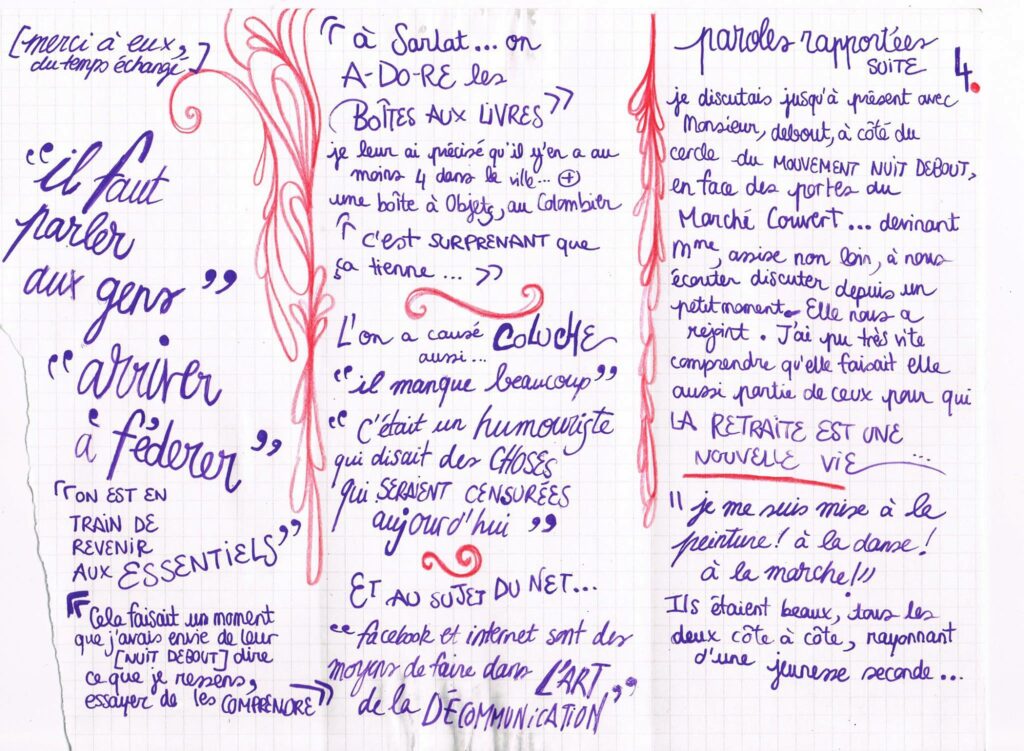 [merci à eux,
du temps échangé]
“il faut
parler
aux gens”
“arriver
à féderer”
“ON EST EN
TRAIN DE
REVENIR
AUX ESSENTIELS”
“Cela faisait un moment
que j'avais envie de leur
[NUIT DEBOUT] dire
ce que je ressens,
essayer de les COMPRENDRE”
“à Sarlat... on
A-DO-RE les
BOÎTES AUX LIVRES”
je leur ai précisé qu'il y'en a au
moins 4 dans la ville... ⊕
une boîte à Objets, au Colombier
“C'est SURPRENANT que
ça tienne ...”
L'on a causé COLUCHE
aussi...
“il manque beaucoup”
“C'était un humouriste
qui disait des CHOSES
qui SERAIENT CENSURÉES
aujourd'hui”
ET AU SUJET DU NET...
“facebook et internet sont des
moyens de faire dans L'ART
de la DÉCOMMUNICATION”
paroles rapportées
SUITE
4.
je discutais jusqu'à présent avec
Monsieur, debout, à côté du
cercle du MOUVEMENT NUIT DEBOUT,
en face des portes du
Marché Couvert... devinant
Mme, assise non loin, à nous
écouter discuter depuis un
petit moment. Elle nous a
rejoint. J'ai pu très vite
comprendre qu'elle faisait elle
aussi partie de ceux pour qui
LA RETRAITE EST UNE
NOUVELLE VIE ...
“je me suis mise à la
peinture! à la danse!
à la marche!”
Ils étaient beaux, tous les
deux côte à côte, rayonnant
d'une jeunesse seconde...